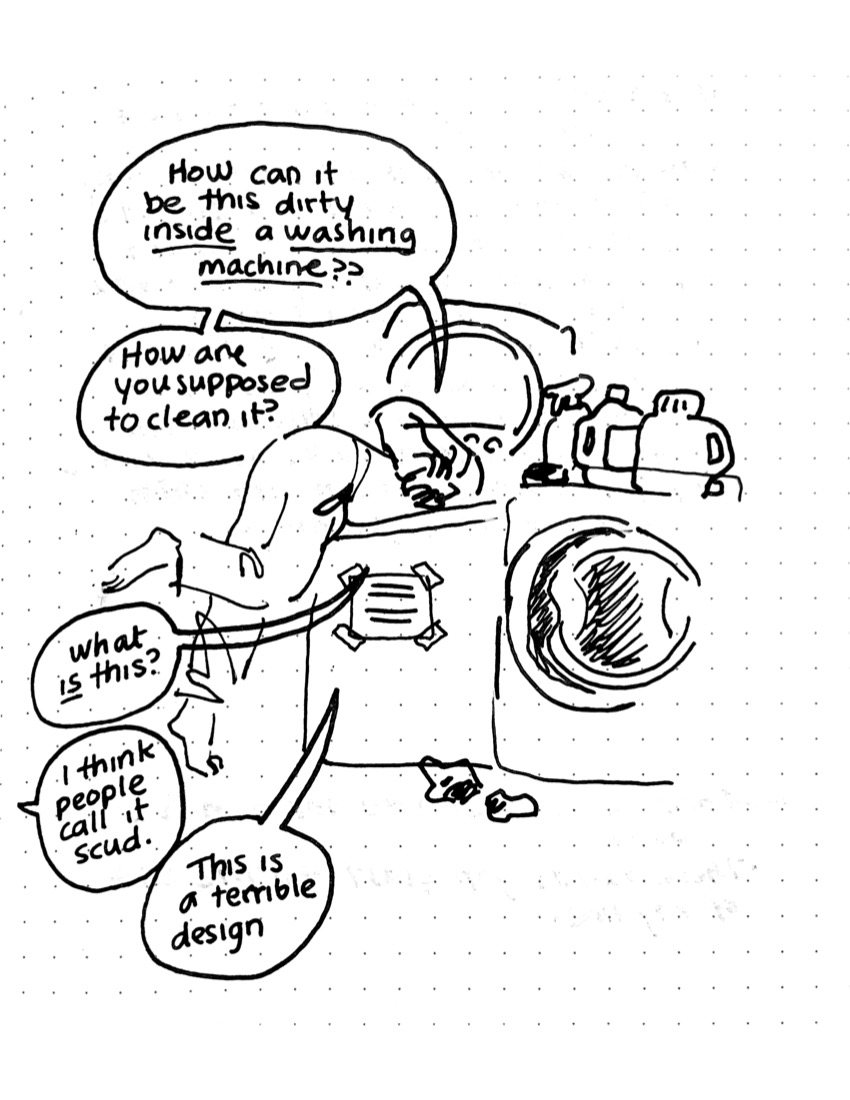 How can it
be this dirty
inside a washing
machine??
How are
you supposed
to clean it?
What
is this?
I think
people
call it
scud.
This is
a terrible
design